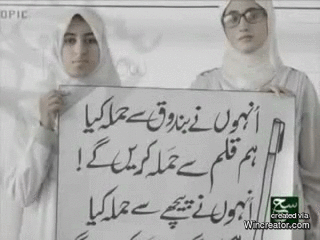 OPIC
اُنہوں نے بندوق سے حملہ کیا
ہم قلم سے حملہ کریں گے!
اُنہوں نے پیچھے سے حملہ کیا
سچ
created via
Wincreator.com